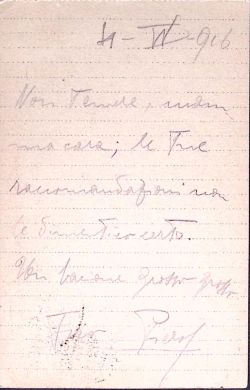 4-VI-916
Non temere, mam
ma cara; le tue
raccomandazioni non
le dimentico certo.
Un bacione grosso grosso
Tuo